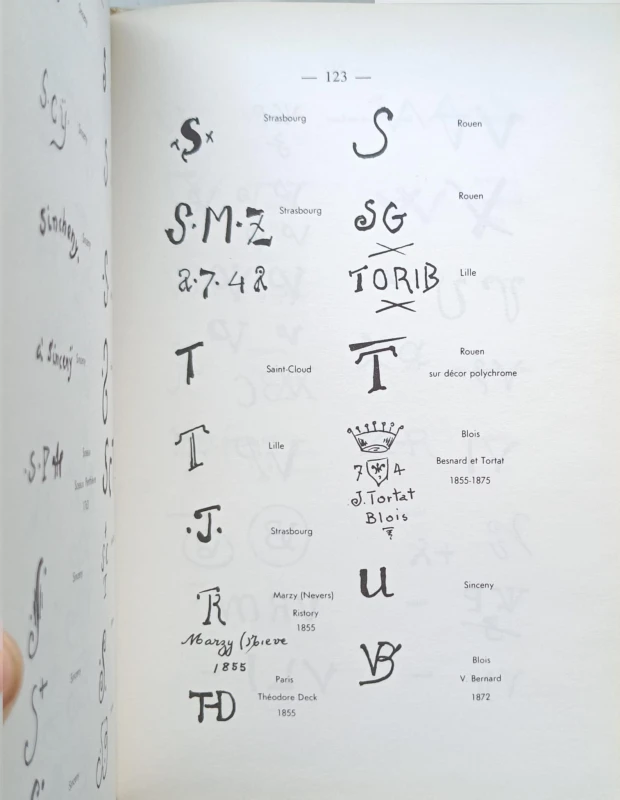 — 123 —
S
Strasbourg
S·M·Z
Strasbourg
2·7·42
T
Saint-Cloud
T
Lille
·J·
Strasbourg
TR
Marzy (Nevers)
Ristory
1855
Marzy (Nieve
1855
Paris
THD
Théodore Deck
1855
S
Rouen
SG
Rouen
TORIB
Lille
T
Rouen
sur décor polychrome
Blois
7 4
Besnard et Tortat
1855-1875
J. Tortat
Blois
u
Sinceny
VB
Blois
V Bernard
1872
S.c.ÿ
Sincheny,
à Sinceny
S